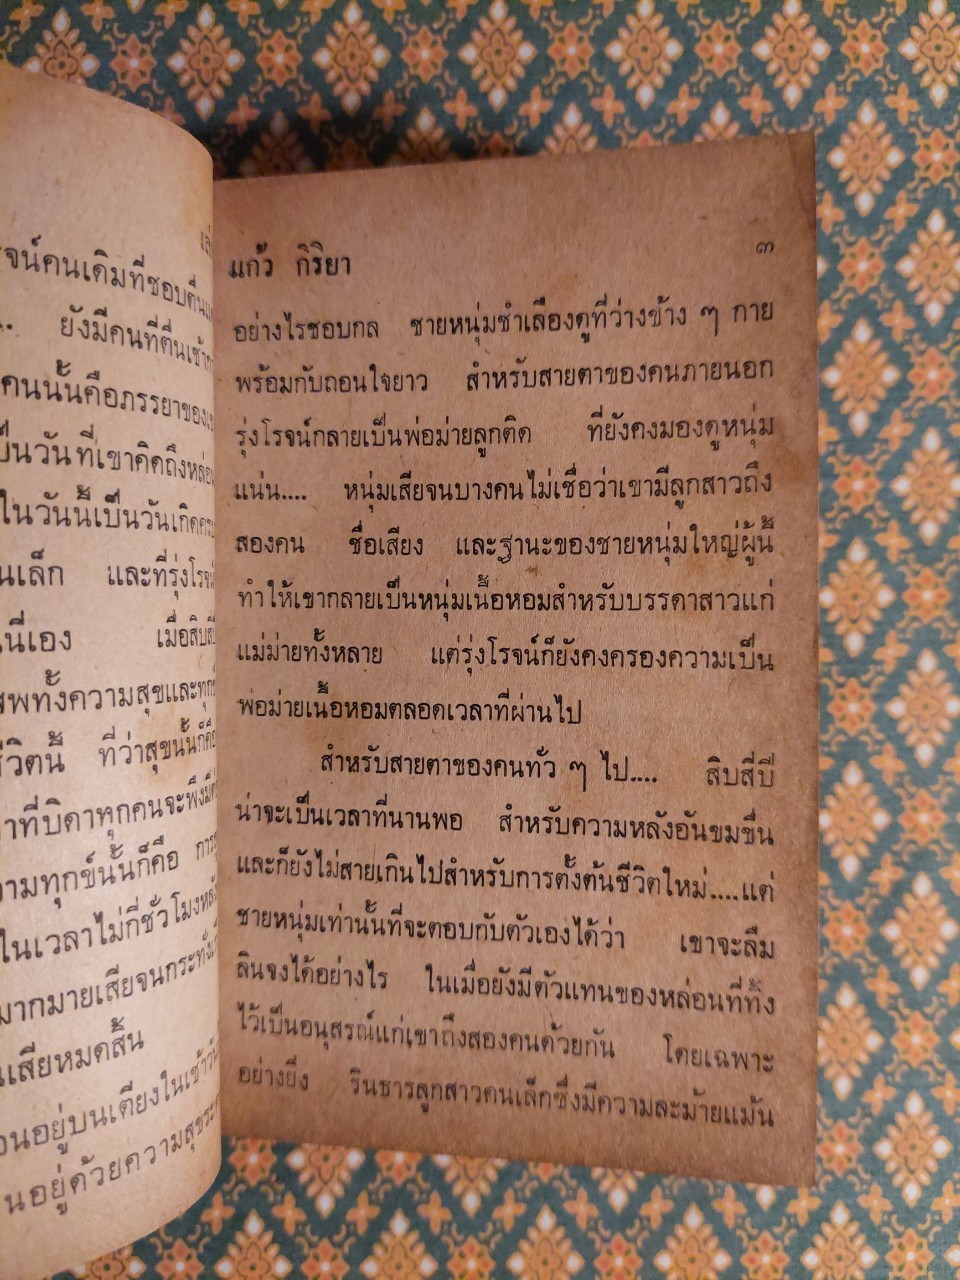 จน์คนเดิมที่ชอบตื่น
.. ยังมีคนที่ตื่นเช้า
คนนั้นคือภรรยาของ
ป็นวันที่เขาคิดถึงหล่อน
ในวันนี้เป็นวันเกิด
นเล็ก และที่รุ่งโรจน์
นี่เอง เมื่อสิบสี่ปี
สพทั้งความสุขและทุกข์
ชีวิตนี้ ที่ว่าสุขนั้นก็คือ
าที่บิดาทุกคนจะพึงมี
วามทุกข์นั้นก็คือ การ
ในเวลาไม่กี่ชั่วโมงหลัง
มากมายเสียจนกระทั่ง
นเสียหมดสิ้น
อนอยู่บนเตียงในเช้าวัน
นอยู่ด้วยความสุข
แก้ว กิริยา ๓
อย่างไรชอบกล ชายหนุ่มชำเลืองดูที่ว่างข้าง ๆ กาย
พร้อมกับถอนใจยาว สำหรับสายตาของคนภายนอก
รุ่งโรจน์กลายเป็นพ่อม่ายลูกติด ที่ยังคงมองดูหนุ่ม
แน่น.... หนุ่มเสียจนบางคนไม่เชื่อว่าเขามีลูกสาวถึง
สองคน ชื่อเสียง และฐานะของชายหนุ่มใหญ่ผู้นี้
ทำให้เขากลายเป็นหนุ่มเนื้อหอมสำหรับบรรดาสาวแก่
แม่ม่ายทั้งหลาย แต่รุ่งโรจน์ก็ยังคงครองความเป็น
พ่อม่ายเนื้อหอมตลอดเวลาที่ผ่านไป
สำหรับสายตาของคนทั่ว ๆ ไป.... สิบสี่ปี
น่าจะเป็นเวลาที่นานพอ สำหรับความหลังอันขมขื่น
และก็ยังไม่สายเกินไปสำหรับการตั้งต้นชีวิตใหม่....แต่
ชายหนุ่มเท่านั้นที่จะตอบกับตัวเองได้ว่า เขาจะลืม
ลินจงได้อย่างไร ในเมื่อยังมีตัวแทนของหล่อนที่ทิ้ง
ไว้เป็นอนุสรณ์แก่เขาถึงสองคนด้วยกัน โดยเฉพาะ
อย่างยิ่ง รินธารลูกสาวคนเล็กซึ่งมีความละม้ายแม้น